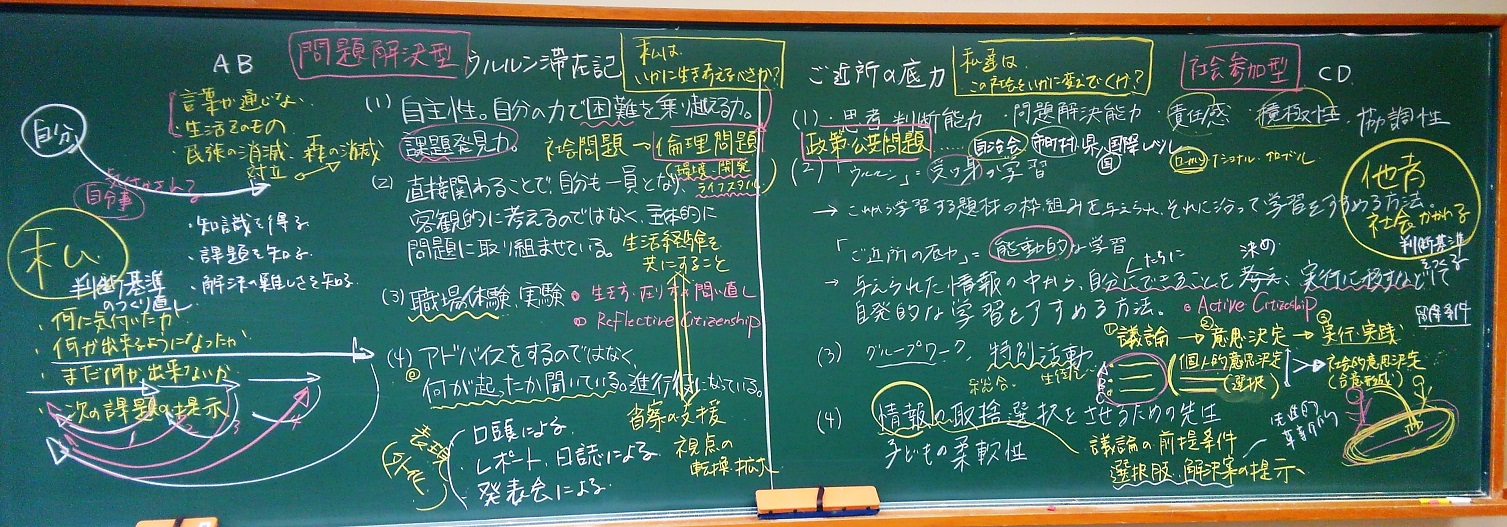 AB
問題解決型
ウルルン滞在記
私は
いかに生き考えるべきか?
言葉が通じない
・生活そのもの
・民族の消滅、森の消滅
対立
自分
自分事
私
・知識を得る
・課題を知る
・解決の難しさを知る
判断基準
のつくり直し
・何に気付いたか
・何が出来るようになったか
・まだ何が出来ないか
・次の課題の提示
1 2 3 4
(1) 自主性。自分の力で困難を乗り越える力。
課題発見力。
社会問題→倫理問題
(環境・開発
ライフスタイル)
(2) 直接関わることで、自分も一員となり
客観的に考えるのではなく、主体的に
問題に取り組ませている。
生活経験を
共にすること
(3) 職場体験、実験
生き方、在り方の問い直し
Reflective Citizenship
(4) アドバイスをするのではなく
何が起ったか聞いている。進行役になっている。
省察の支援
視点の
転換・拡大
表現
口頭による
レポート、日誌による
発表会による
ご近所の底力
私達は、
この社会をいかに変えていくけ?
社会参加型
CD
(1) ・思考・判断能力 ・問題解決能力 ・責任感 ・積極性・協調性
政策・公共問題 ……自治会 市町村 県 国 国際レベル
ローカル ナショナル グローバル
(2) 「ウルルン」=受け身の学習
→ これから学習する題材の枠組みを与えられ、それに沿って学習をすすめる方法。
「ご近所の底力」=能動的な学習
→ 与えられた情報の中から、自分たちにできることを考え、決め、実行に移すなどして
自発的な学習をすすめる方法。
Active Citizenship
他者
社会とかかわる
判断基準
をつくる
(3) グループワーク、特別活動
総合
①議論→②意思決定→③実行・実践
(個人的意思決定)
(選択)
社会的意思決定
(合意形成)
(4) 情報の取捨選択をさせるための先生
子どもの柔軟性
議論の前提条件
選択肢、解決策の提示
先進的
革新的